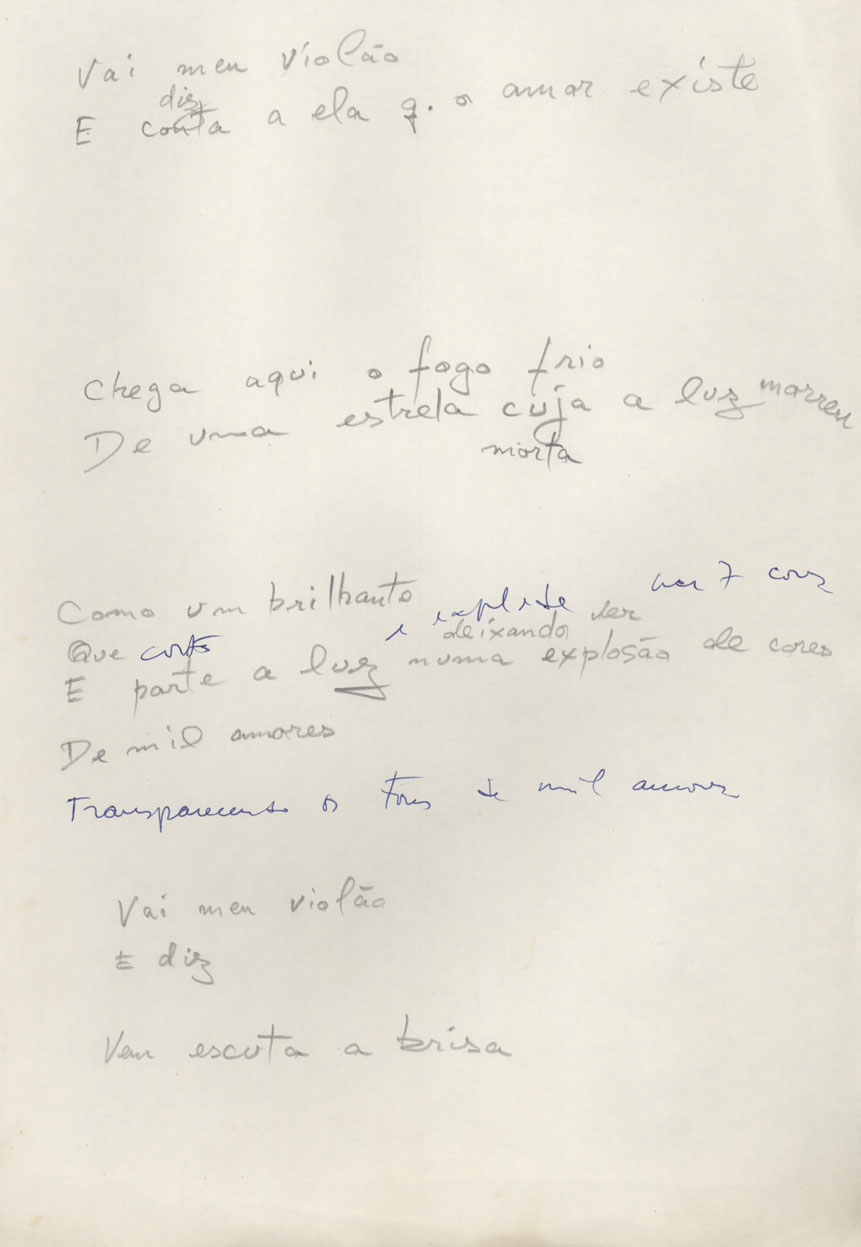 Vai meu violão
diz
E conta a ela q. o amor existe
Chega aqui o fogo frio
De uma estrela cuja a luz morreu
morta
Como um brilhante
e explode nas 7 cores
Que corta deixando ver
E parte a luz numa explosão de cores
De mil amores
Transparecendo os tons de mil amores
Vai meu violão
E diz
Vem escuta a brisa